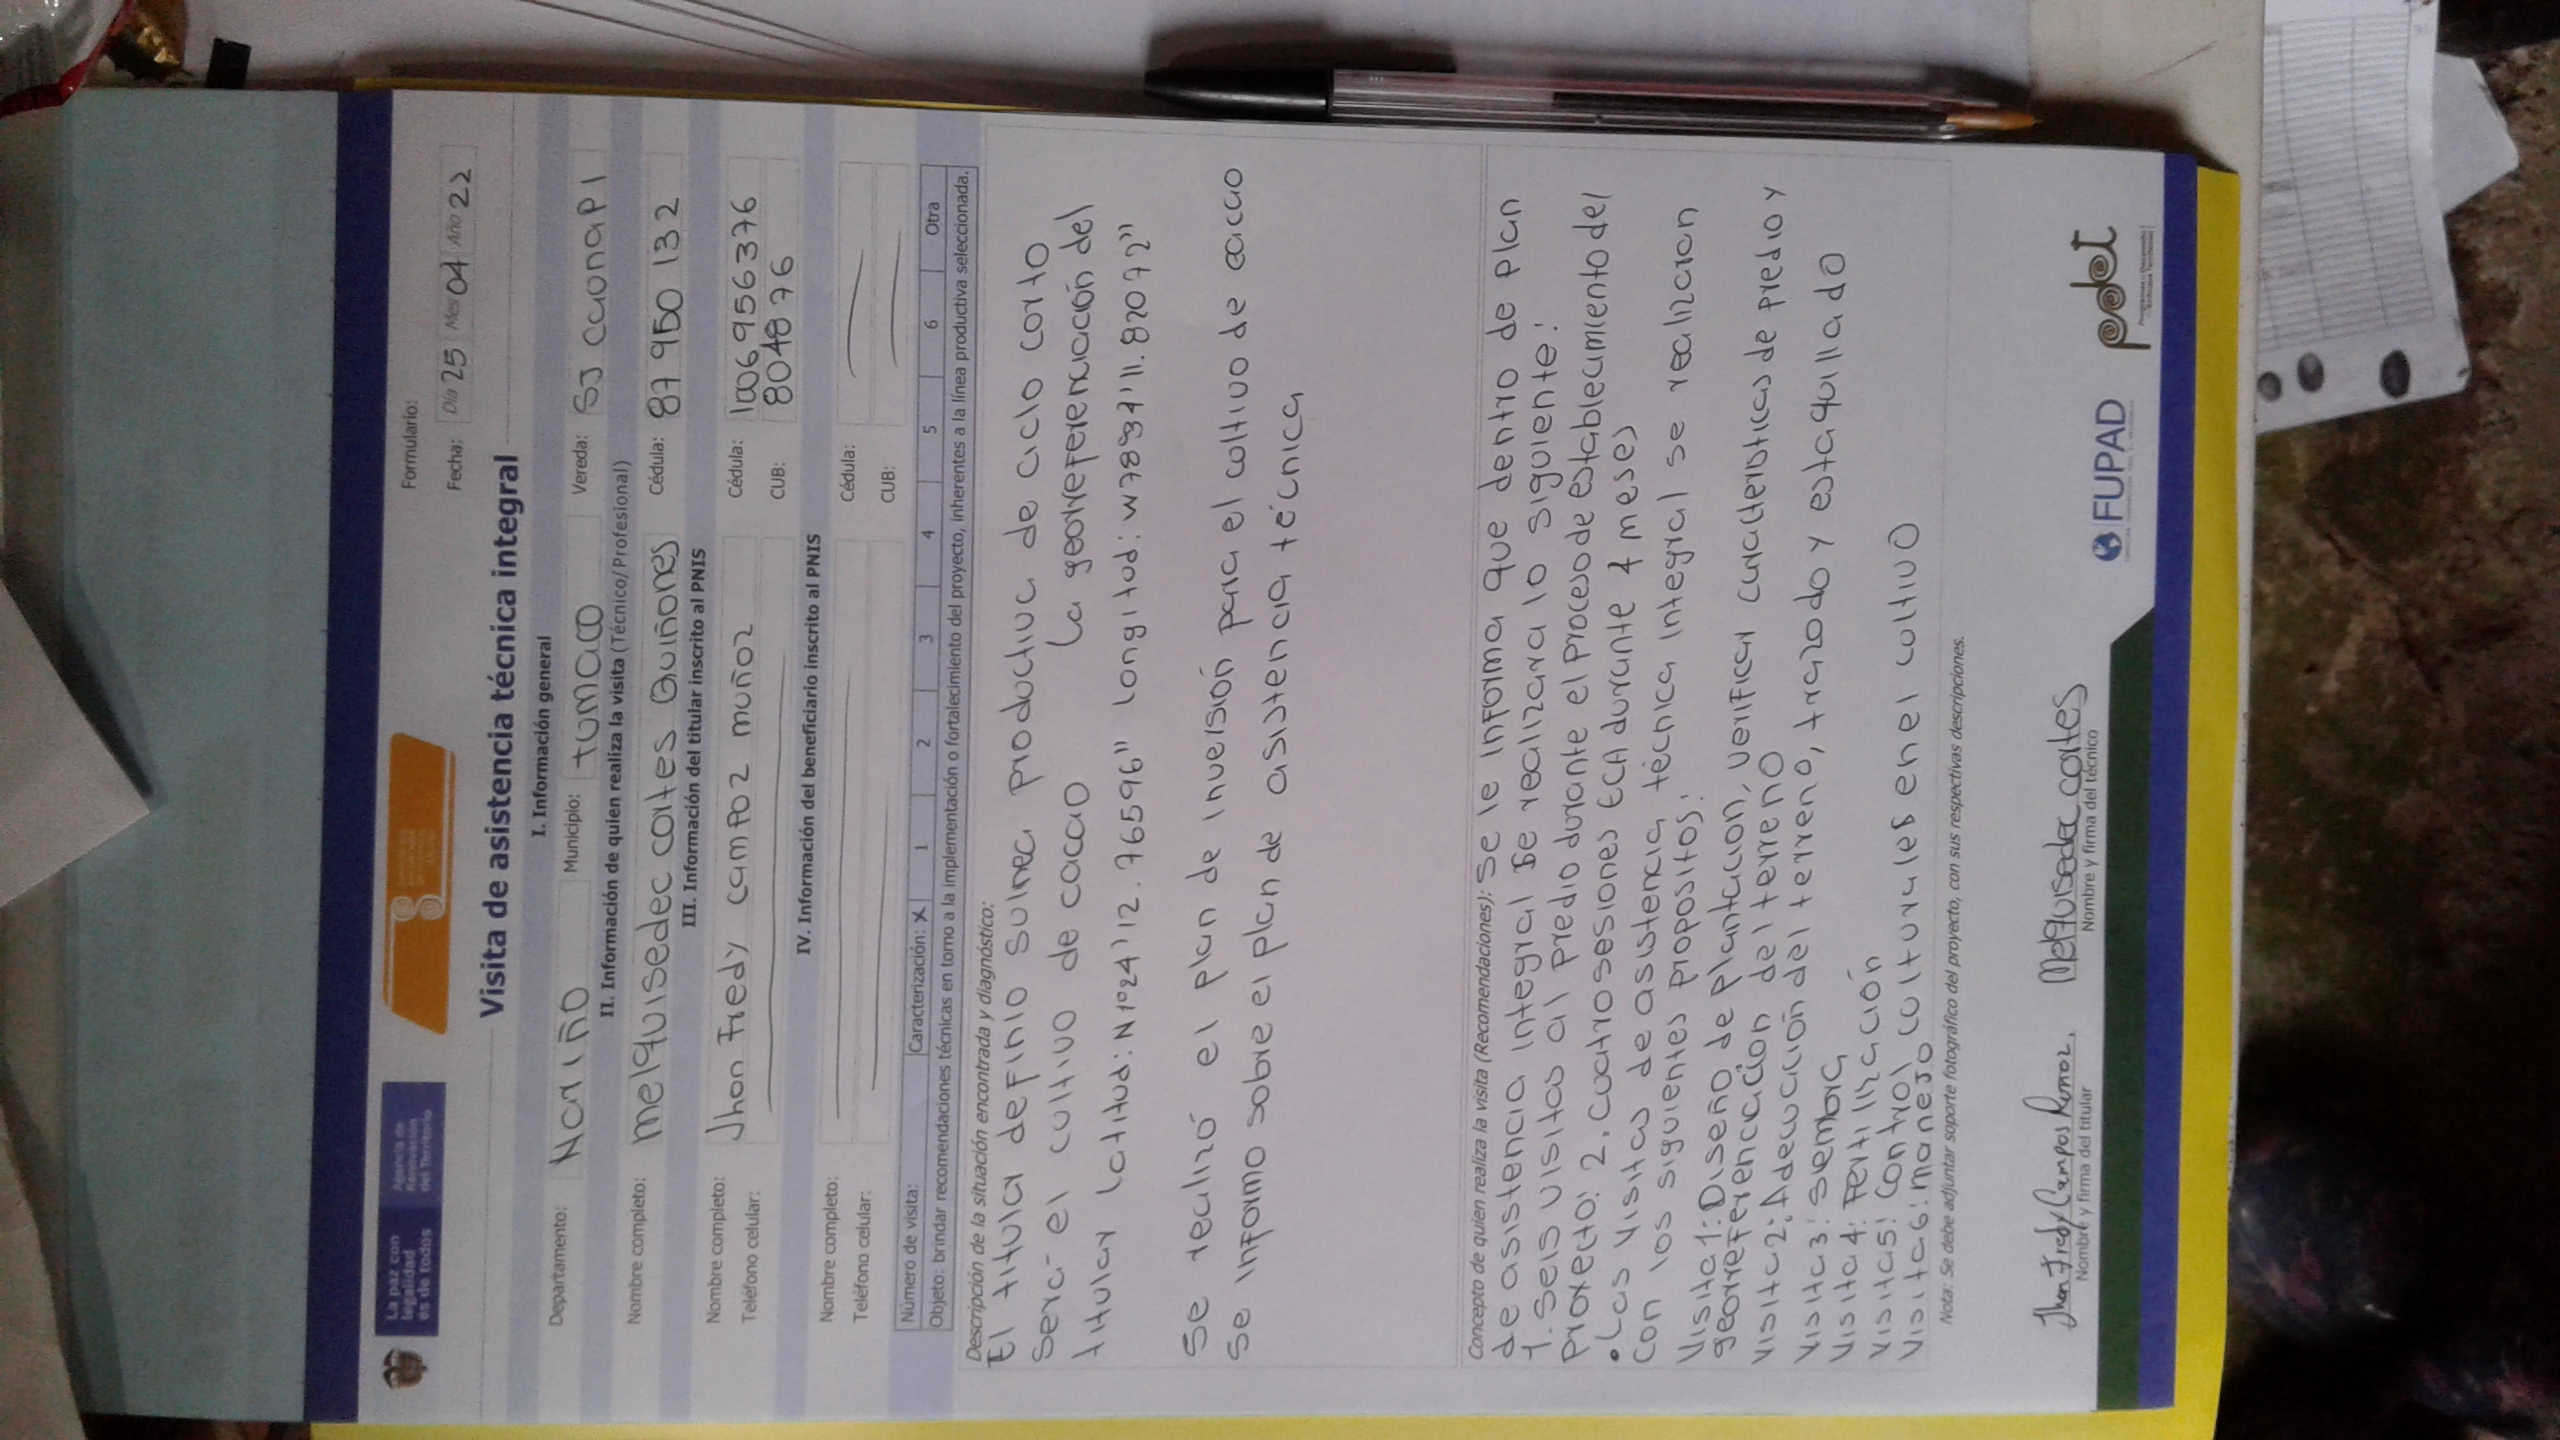 La paz con
legalidad
es de todos
Agencia de
Renovación
del Territorio
Formulario:
Fecha: Día 25 Mes 04 Año 22
Visita de asistencia técnica integral
I. Información general
Departamento: Nariño Municipio: tumaco Vereda: SJ caunapi
II. Información de quien realiza la visita (Técnico/Profesional)
Nombre completo: melquisedec cortes Quiñones Cédula: 87 950 132
III. Información del titular inscrito al PNIS
Nombre completo: Jhon Fredy campoz muñoz Cédula: 1006956376
Teléfono celular: CUB: 8048 76
IV. Información del beneficiario inscrito al PNIS
Nombre completo: Cédula:
Teléfono celular: CUB:
Número de visita: Caracterización: X 1 2 3 4 5 6 Otra
Objeto: brindar recomendaciones técnicas en torno a la implementación o fortalecimiento del proyecto, inherentes a la línea productiva seleccionada.
Descripción de la situación encontrada y diagnóstico:
El titular definio su linea productiva de ciclo corto
sera el cultivo de cacao La georreferenciación del
titular Latitud: N1°24'12.76596" Longitud: W78°37'11.82072"
Se realizó el plan de inversión para el cultivo de cacao
Se informo sobre el plan de asistencia técnica
Concepto de quien realiza la visita (Recomendaciones): Se le informa que dentro de plan
de asistencia integral se realizara lo siguiente:
1. Seis visitas al predio durante el proceso de establecimiento del
proyecto: 2. cuatro sesiones ECA durante 4 meses
• Las visitas de asistencia técnica integral se realizaran
con los siguientes propositos:
Visita 1: Diseño de plantacion, verificar caracteristicas de predio y
georreferenciación del terreno
Visita 2: Adecuación del terreno, trazado y estaquillado
Visita 3: siembra
Visita 4: Fertilización
Visita 5: Control culturales en el cultivo
Visita 6: manejo
Nota: Se debe adjuntar soporte fotográfico del proyecto, con sus respectivas descripciones.
Jhon Fredy Campos Munoz. Melquisedec cortes
Nombre y firma del titular Nombre y firma del técnico
FUPAD
pdet